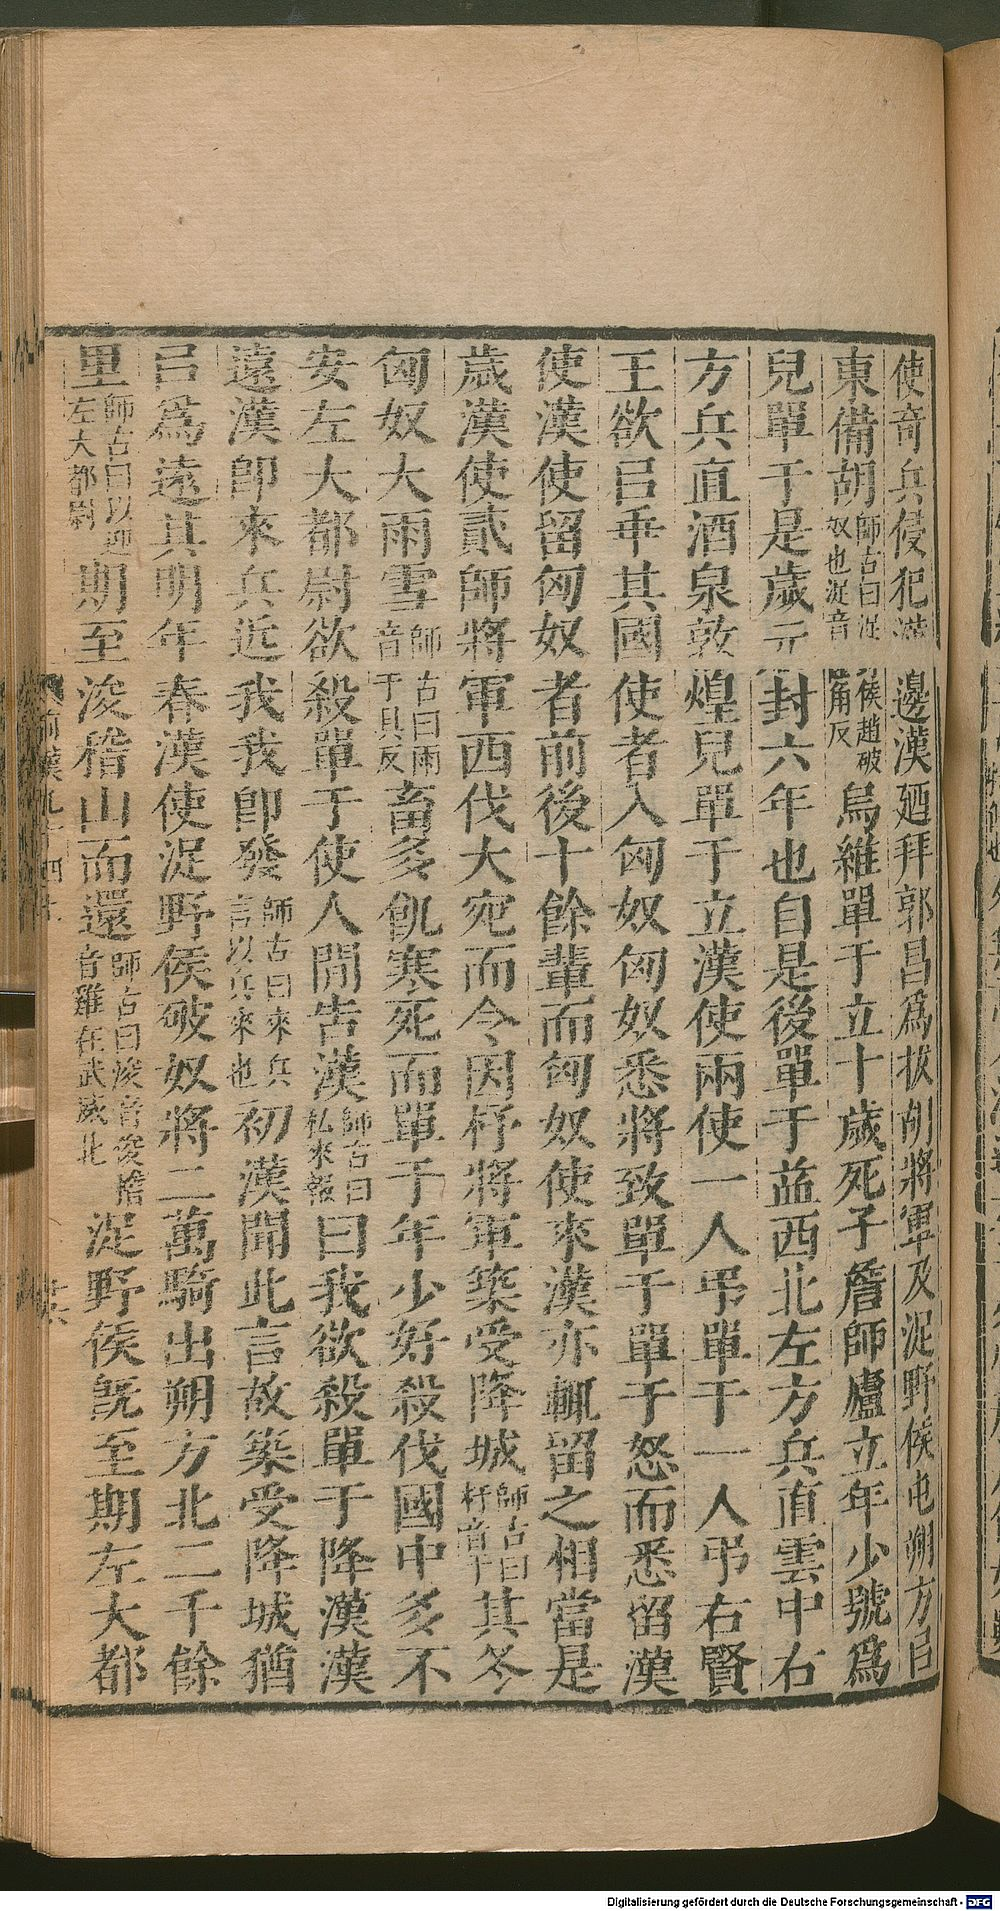 使奇兵侵犯漢邊漢廼拜郭昌爲拔胡將軍及浞野侯屯朔方㠯
東備胡師古曰浞野侯趙破奴也浞音角反烏維單于立十歲死子詹師廬立年少號爲
兒單于是歲元封六年也自是後單于益西北左方兵直雲中右
方兵直酒泉敦煌兒單于立漢使兩使一人弔單于一人弔右賢
王欲㠯乖其國使者入匈奴匈奴悉將致單于單于怒而悉留漢
使漢使留匈奴者前後十餘輩而匈奴使來漢亦輒留之相當是
歲漢使貳師將軍西伐大宛而令因杅將軍築受降城師古曰杅音于其冬
匈奴大雨雪師古曰雨音于具反畜多飢寒死而單于年少好殺伐國中多不
安左大都尉欲殺單于使人閒告漢師古曰私來報曰我欲殺單于降漢漢
遠漢卽來兵近我我卽發師古曰來兵言以兵來也初漢聞此言故築受降城猶
㠯爲遠其明年春漢使浞野侯破奴將二萬騎出朔方北二千餘
里師古曰以迎左大都尉期至浚稽山而還師古曰浚音峻稽音雞在武威北浞野侯旣至期左大都
前漢九十四上
Digitalisierung gefördert durch die Deutsche Forschungsgemeinschaft - DFG